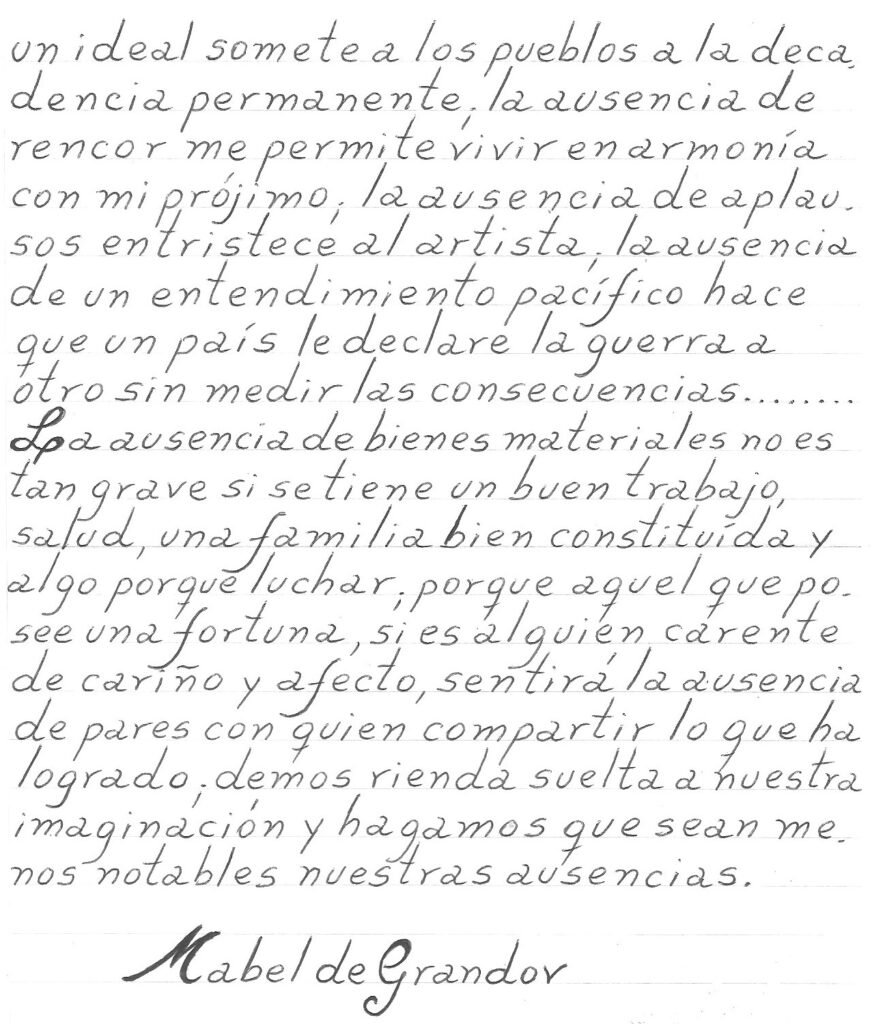 un ideal somete a los pueblos a la deca.
dencia permanente; la ausencia de
rencor me permite vivir en armonía
con mi prójimo; la ausencia de aplau.
sos entristece al artista; la ausencia
de un entendimiento pacífico hace
que un país le declare la guerra a
otro sin medir las consecuencias........
La ausencia de bienes materiales no es
tan grave si se tiene un buen trabajo,
salud, una familia bien constituída y
algo porque luchar; porque aquel que po.
see una fortuna, si es alguien carente
de cariño y afecto, sentirá la ausencia
de pares con quien compartir lo que ha
logrado; demos rienda suelta a nuestra
imaginación y hagamos que sean me.
nos notables nuestras ausencias.
Mabel de Grandov